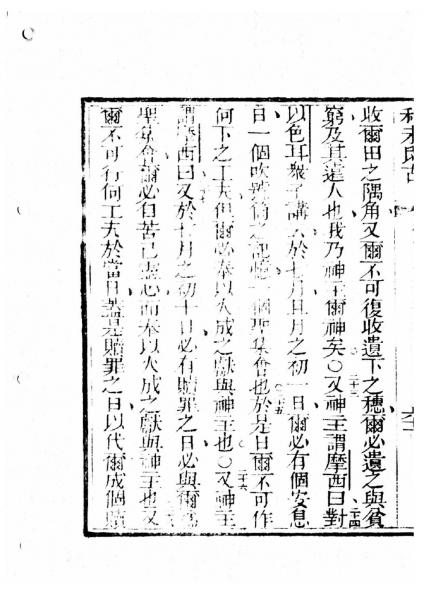 收爾田之隅角又爾不可復收遺下之穗爾必遺之與貧
窮及其遠人也我乃神主爾神矣〇又神主謂摩西曰對
二十三
二十四
以色耳眾子講云於七月且月之初一日爾必有個安息
日一個吹號筒之記憶一個聖集會也於是日爾不可作
二十五
何下之工夫但爾必奉以火成之獻與神主也〇又神主
二十六
謂摩西曰又於七月之初十日必有贖罪之日必與爾為
聖集會爾必自苦己靈心而奉以火成之獻與神主也又
爾不可行何工夫於當日蓋是贖罪之日以代爾成個贖